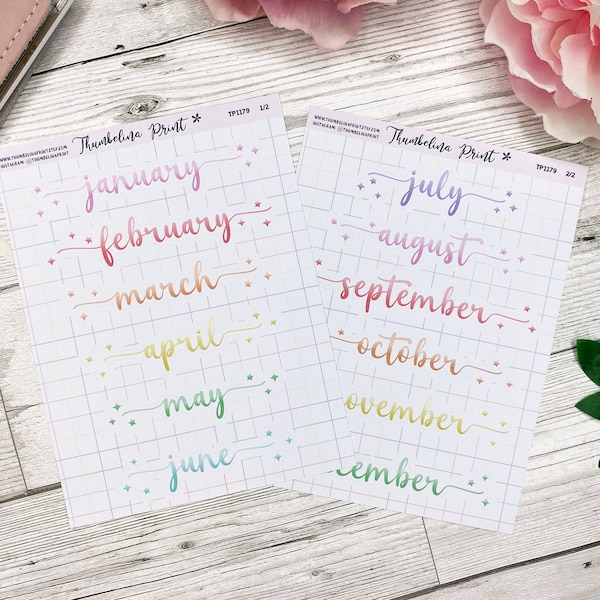 WWW.THUMBELINAPRINT.ETSY.COM
INSTAGRAM: @THUMBELINAPRINT
Thumbelina Print
TP1179 1/2
january
february
march
april
may
june
WWW.THUMBELINAPRINT.ETSY.COM
INSTAGRAM: @THUMBELINAPRINT
Thumbelina Print
TP1179 2/2
july
august
september
october
ovember
cember